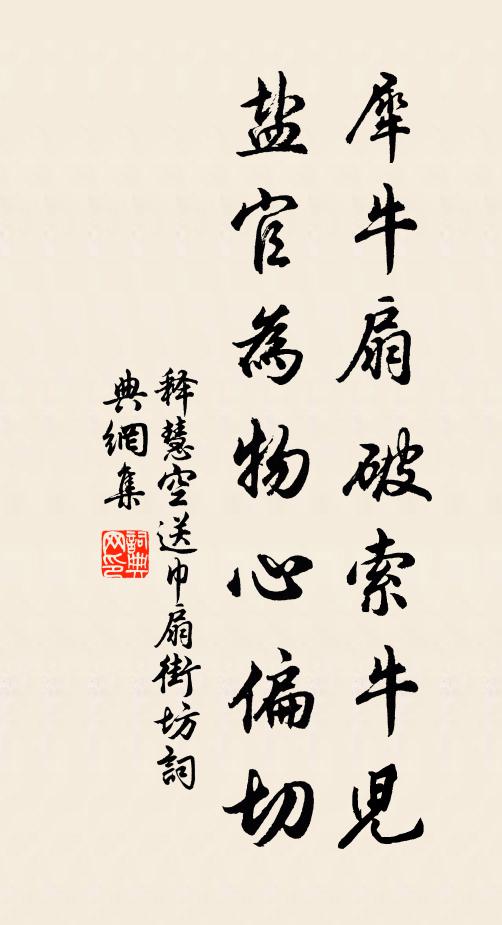 犀牛扇破索牛児
盐官為物心偏切
释慧空送巾扇街坊詞
典網集
詞典网印